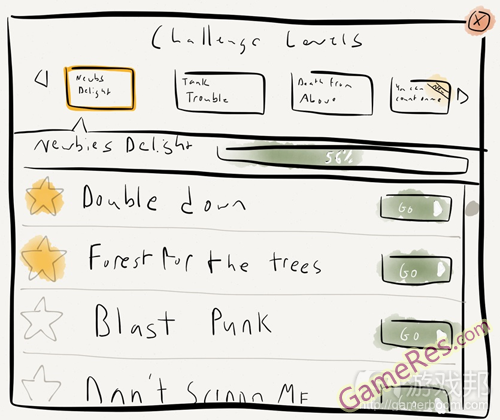 x
Challenge Levels
Newbs
Delight
Tank
Trouble
Death From
Above
You can
count on me
Newbies Delight
56%
Double down
GO
Forest for the trees
GO
Blast Punk
GO
Don't Me
GameRes.com
游戏邦
gamerboom.com